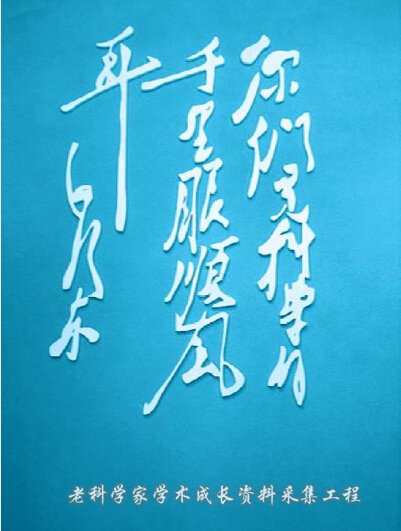 你們是科学的
千里眼順风
耳
毛泽东
老科学家学术成长资料采集工程